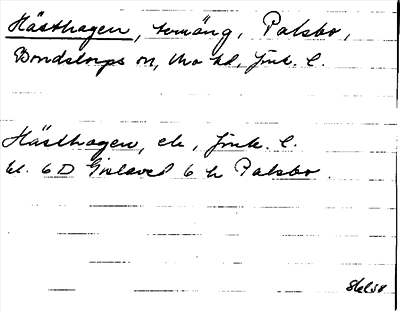 Hästhagen, temäng, Palsbo,
Bondstorps sn, Mo hd, Jönk. l.
Hästhagen, ek, Jönk. l.
bl. 6 D Gislaved 6 h Palsbo.